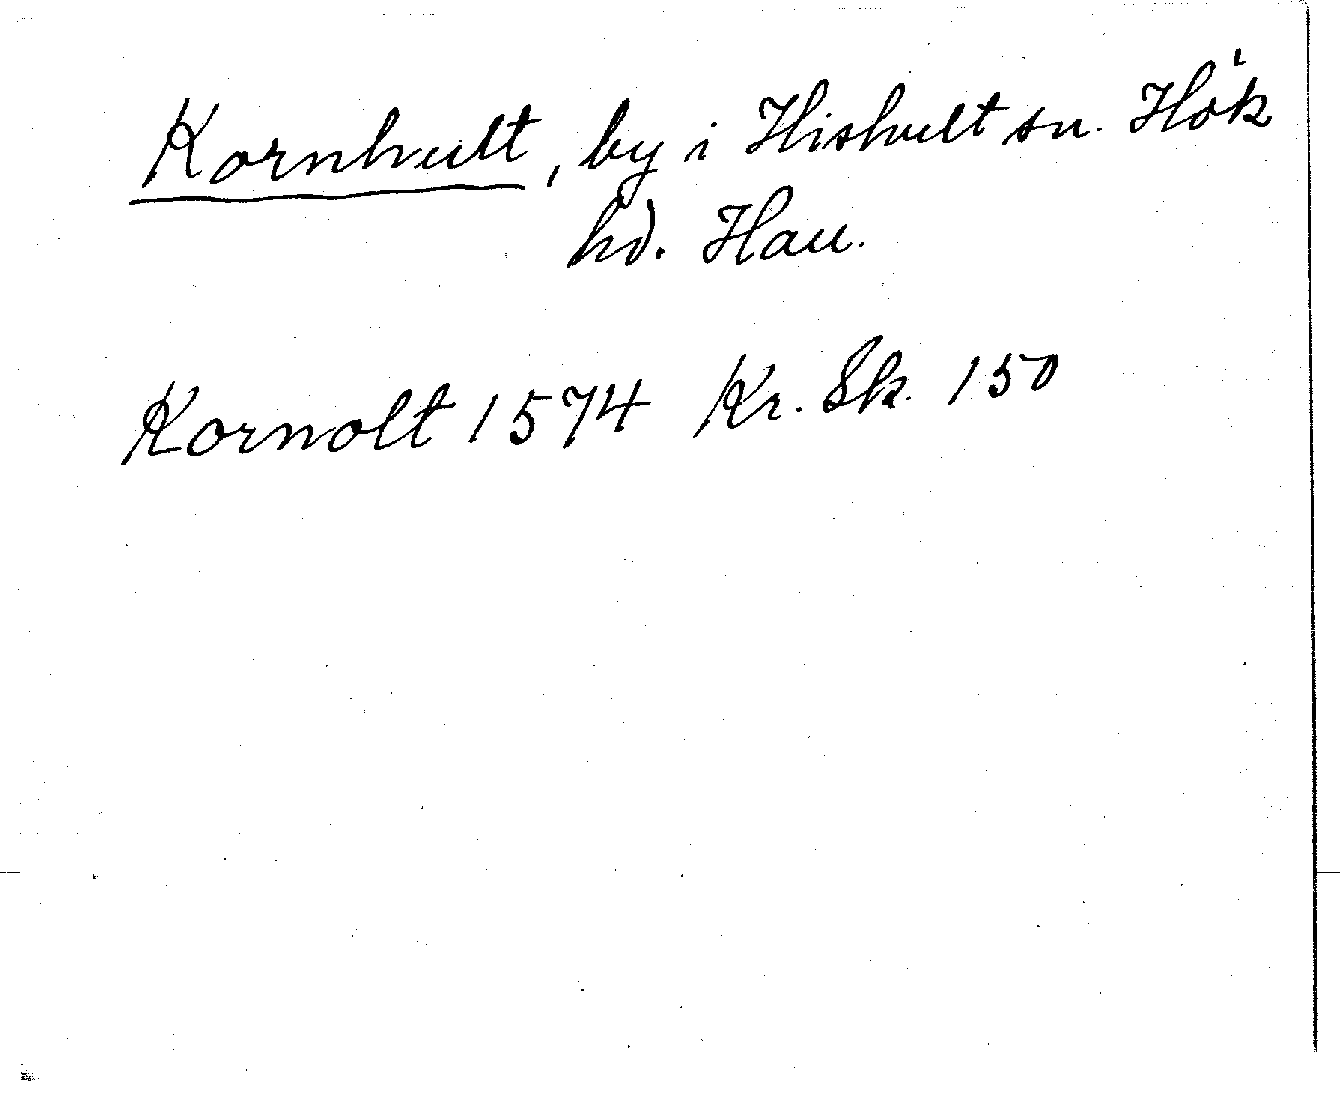 Kornhult, by i Hishult sn. Hök
hd. Hall.
Kornolt 1574 Kr. Sk. 150